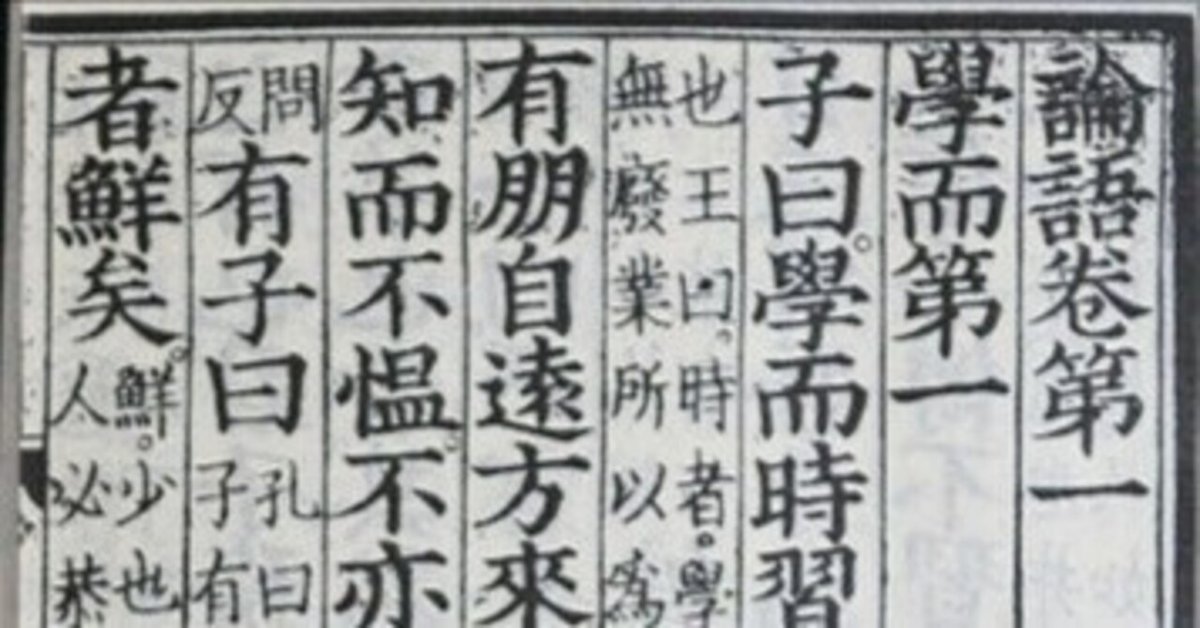 論語卷第一
學而第一
子曰。學而時習
也王曰。時者。學
無廢業所以爲
有朋自遠方來
知而不慍。不亦
問
反
有子曰
孔曰
子有
者鮮矣。
鮮。少也
人必恭